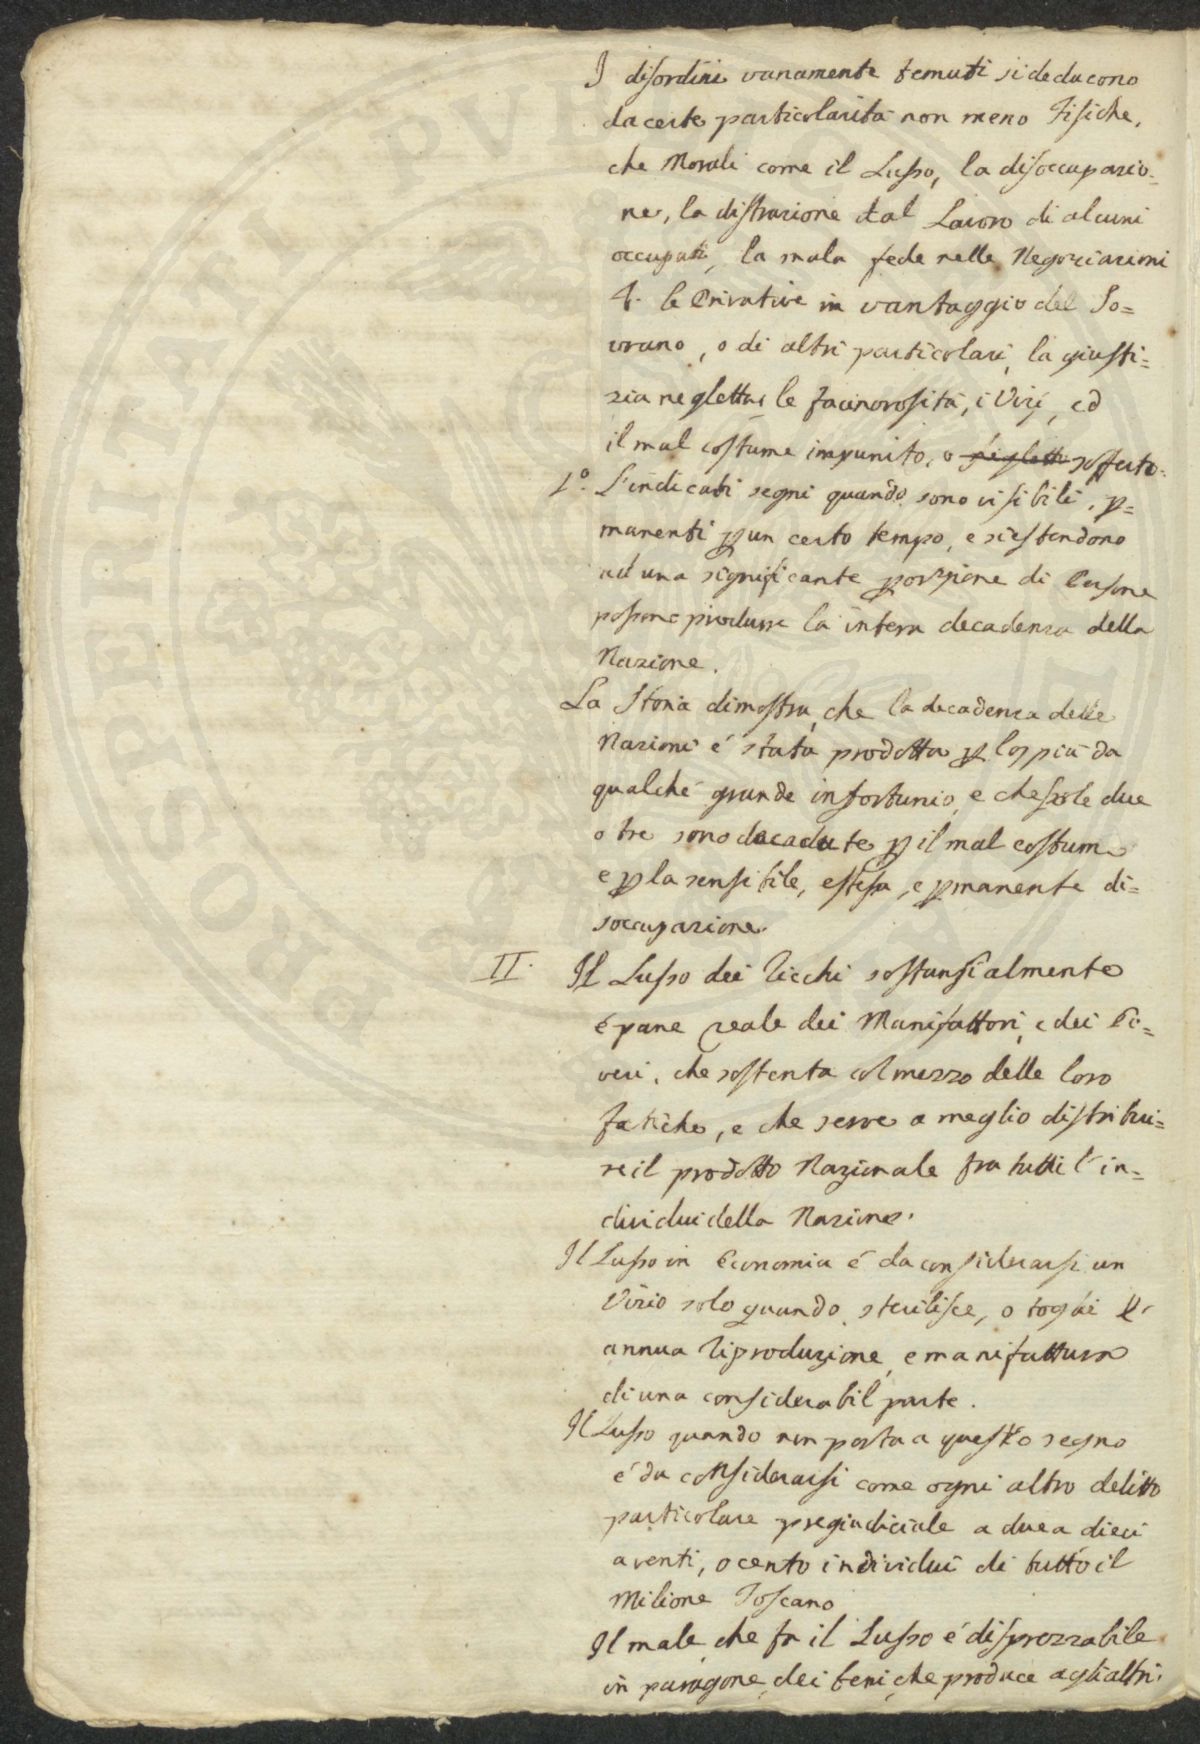 I disordini vanamente temuti si deducono
da certe particolarità non meno Fisiche,
che Morali come il Lusso, la disoccupazio-
ne, la distrazione dal Lavoro di alcuni
occupati, la mala fede nelle Negoziazioni
4. le Privative in vantaggio del So=
vrano, o di altri particolari, la giusti=
zia negletta, le facinorosità, i Vizi, ed
il mal costume impunito, o negletto sofferto.
1.º L'indicati segni quando sono visibili, p=
manenti p un certo tempo, e si estendono
ad una significante porzione di Persone
possono produrre la intera decadenza della
Nazione.
La Storia dimostra, che la decadenza delle
Nazioni é stata prodotta p lo più da
qualche grande infortunio, e che sole due
o tre sono decadute p il mal costume
e p la sensibile, estesa, e pmanente di=
soccupazione.
II. Il Lusso dei Ricchi sostanzialmente
é pane reale dei Manifattori, e dei Po=
veri, che sostenta col mezzo delle loro
fatiche, e che serve a meglio distribui=
re il prodotto Nazionale fra tutti l'in=
dividui della Nazione.
Il Lusso in Economia é da considerarsi un
Vizio solo quando sterilisce, o toglie l'
annua Riproduzione, e manifattura
di una considerabil parte.
Il Lusso quando non porta a questo segno
é da considerarsi come ogni altro delitto
particolare pregiudiciale a due a dieci
a venti, o cento individui di tutto il
Milione Toscano
Il male, che fa il Lusso é disprezzabile
in paragone dei beni, che produce agli altri.
BIBLIOTECA
PVBLICA